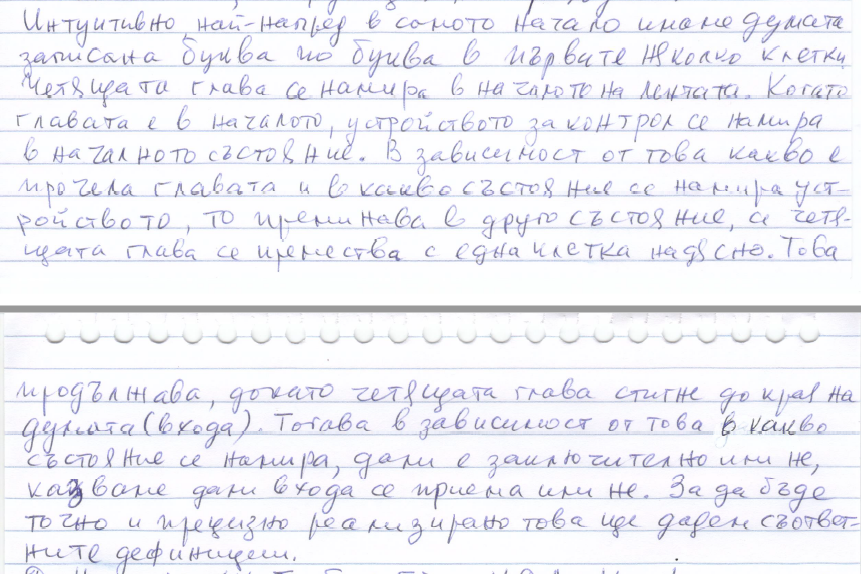 Интуитивно най-напред в самото начало имаме думата
записана буква по буква в първите няколко клетки
Четящата глава се намира в началото на лентата. Когато
главата е в началото, устройството за контрол се намира
в началното състояние. В зависимост от това какво е
прочела главата и в какво състояние се намира уст-
ройството, то преминава в друго състояние, а четя-
щата глава се премества с една клетка надясно. Това
продължава, докато четящата глава стигне до края на
думата (входа). Тогава в зависимост от това в какво
състояние се намира, дали е заключително или не,
казваме дали входа се приема или не. За да бъде
точно и прецизно реализирано това ще дадем съответ-
ните дефиниции.